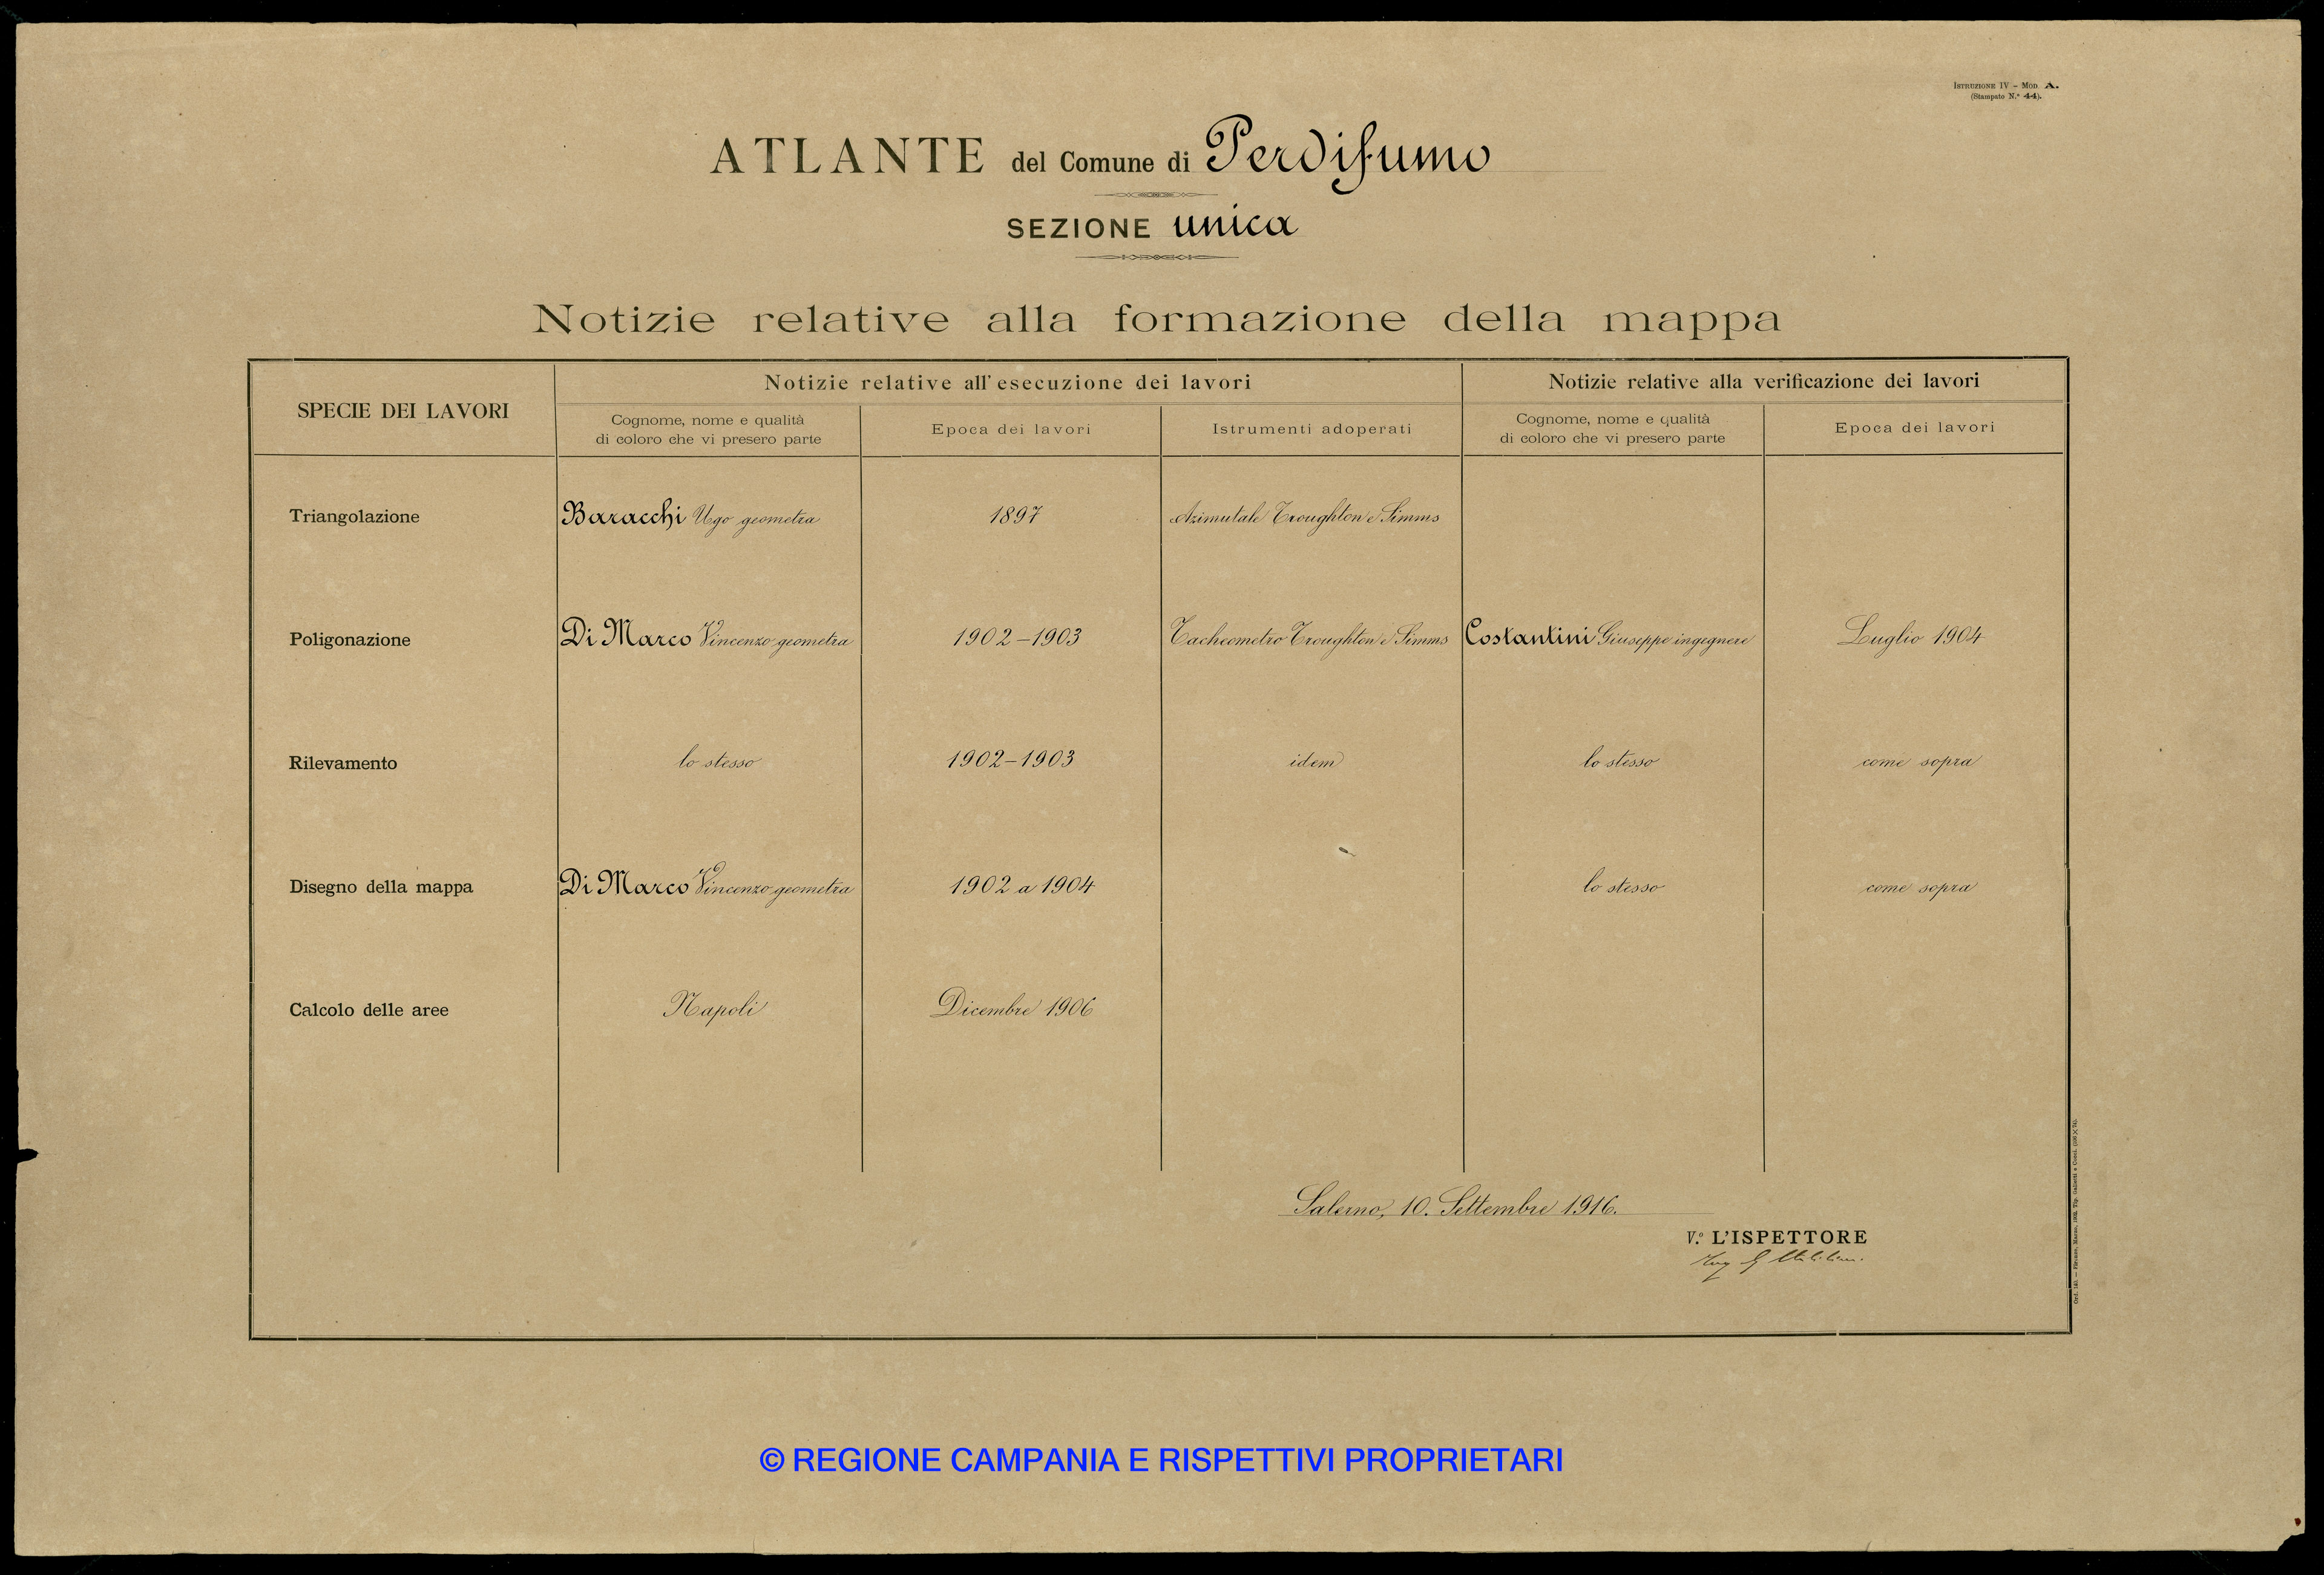 ISTRUZIONE IV – MOD. A.
(Stampato N.° 44).
ATLANTE del Comune di Perdifumo
SEZIONE unica
Notizie relative alla formazione della mappa
SPECIE DEI LAVORI
Notizie relative all'esecuzione dei lavori
Notizie relative alla verificazione dei lavori
Cognome, nome e qualità
di coloro che vi presero parte
Epoca dei lavori
Istrumenti adoperati
Cognome, nome e qualità
di coloro che vi presero parte
Epoca dei lavori
Triangolazione Baracchi Ugo geometra 1897 Azimutale Troughton e Simms
Poligonazione Di Marco Vincenzo geometra 1902–1903 Tacheometro Troughton e Simms Costantini Giuseppe ingegnere Luglio 1904
Rilevamento lo stesso 1902–1903 idem lo stesso come sopra
Disegno della mappa Di Marco Vincenzo geometra 1902 a 1904 lo stesso come sopra
Calcolo delle aree Napoli Dicembre 1906
Salerno, 10. Settembre 1916.
V.° L'ISPETTORE
Ing G
© REGIONE CAMPANIA E RISPETTIVI PROPRIETARI